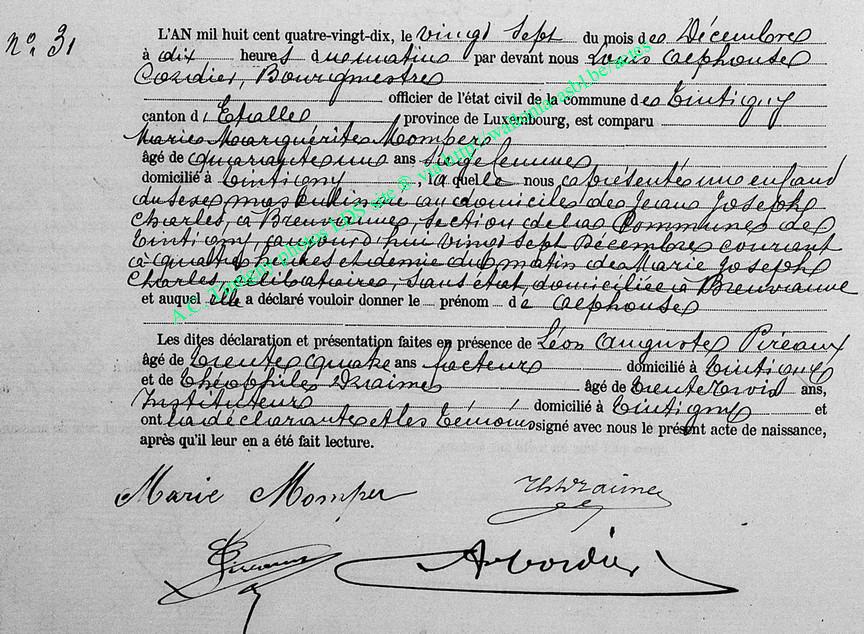 n° 31
L'AN mil huit cent quatre-vingt-dix, le vingt sept du mois de Décembre
à dix heures du matin par devant nous Louis Alphonse
Cordier, Bourgmestre
officier de l'état civil de la commune de Tintigny
canton d'Etalle province de Luxembourg, est comparu
Marie Marguérite Momper
âgé de quarante un ans sage femme
domicilié à Tintigny, laquelle nous a présenté un enfant
du sexe masculin né au domicile de Jean Joseph
Charles, à Breuvanne, section de la Commune de
Tintigny, aujourd'hui vingt sept Décembre courant
à quatre heures et demie du matin de Marie Joseph
Charles, célibataire, sans état, domiciliée à Breuvanne
et auquel elle a déclaré vouloir donner le prénom de Alphonse
Les dites déclaration et présentation faites en présence de Léon Auguste Pireaux
âgé de trente quatre ans facteur domicilié à Tintigny
et de Théophile Draime âgé de trente trois ans,
Instituteur domicilié à Tintigny et
ont la déclarante et les témoins signé avec nous le présent acte de naissance,
après qu'il leur en a été fait lecture.
Marie Momper
Draime
Pireaux
A Cordier
A.C. Tintigny photos LDS site © via http://wallonia-asbl.be/actes